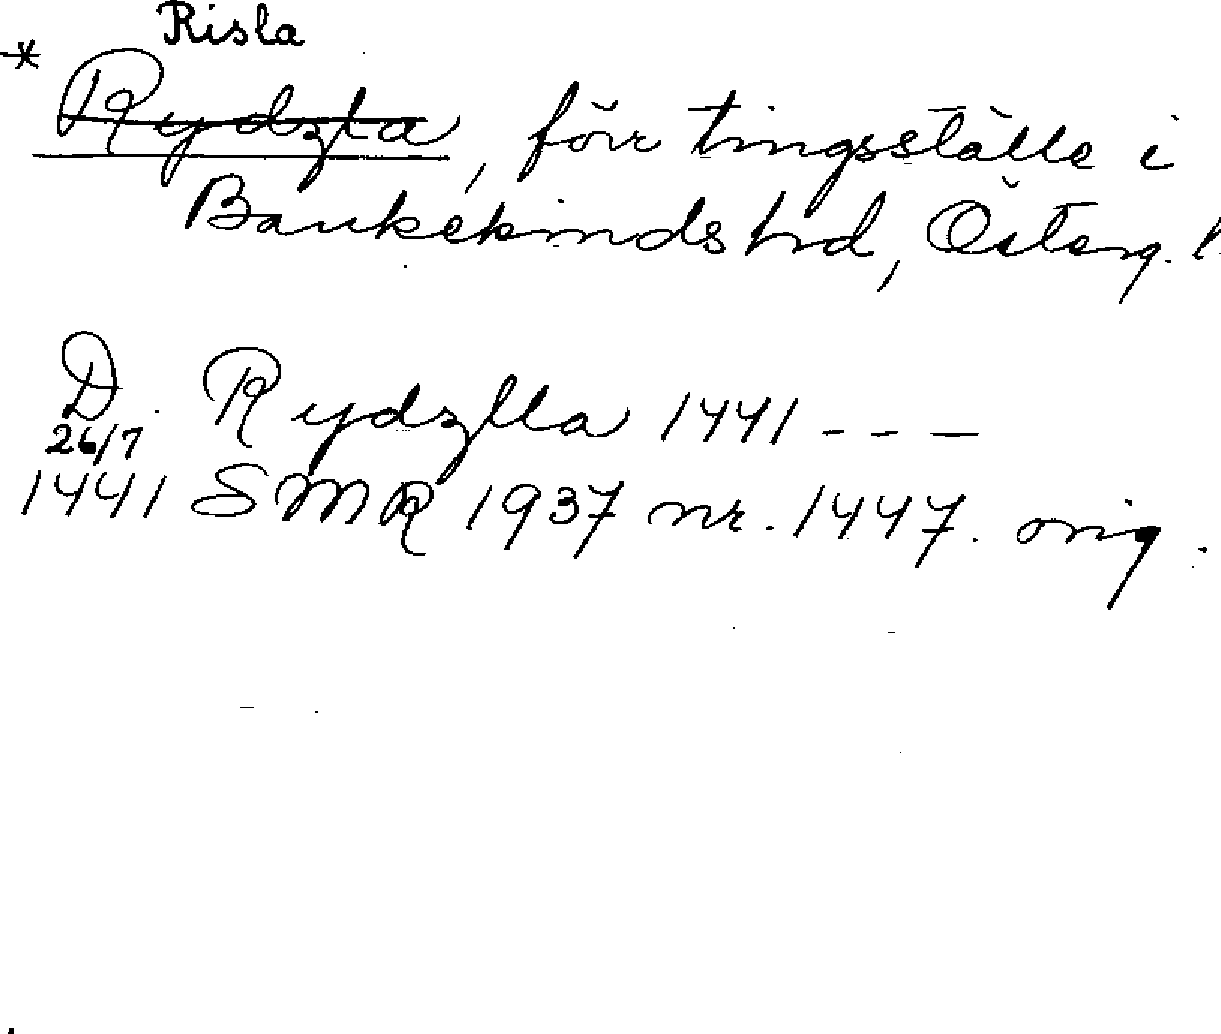 Risla
* Rydzla, förr tingsställe i
Bankekinds hrd, Österg. l.
D. Rydzlla 1441 - - -
26/7
1441 SMR 1937 nr. 1447. orig.